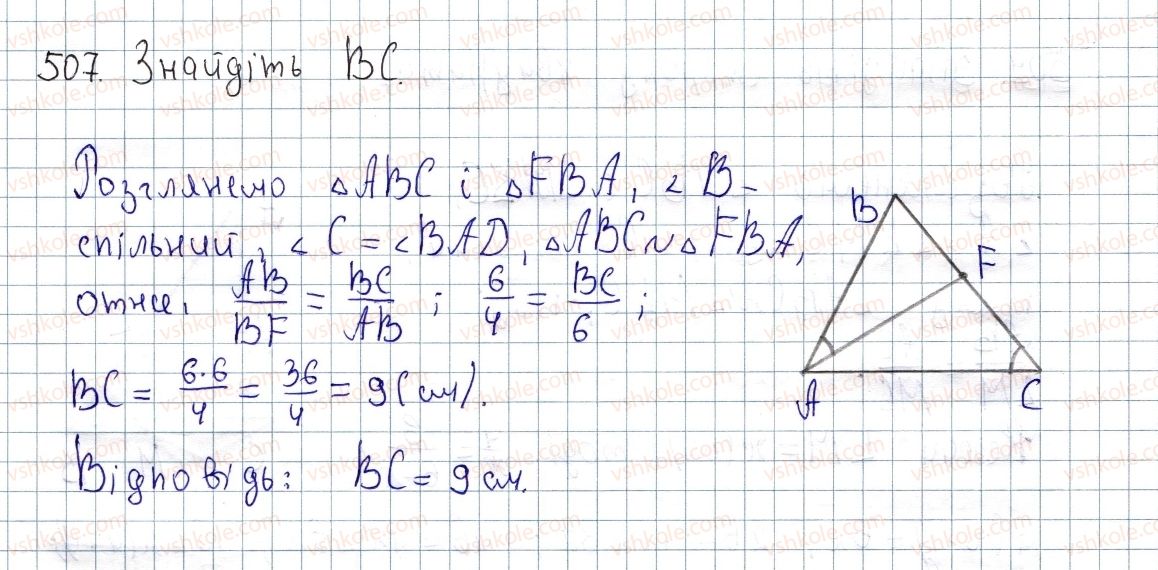 507. Знайдіть BC.
Розглянемо △ABC і △FBA, ∠B -
спільний, ∠C = ∠BAD, △ABC ~ △FBA,
отже, AB/BF = BC/AB ; 6/4 = BC/6 ;
BC = 6·6/4 = 36/4 = 9 (см).
Відповідь: BC = 9 см.
B
F
A
C
vshkole.com